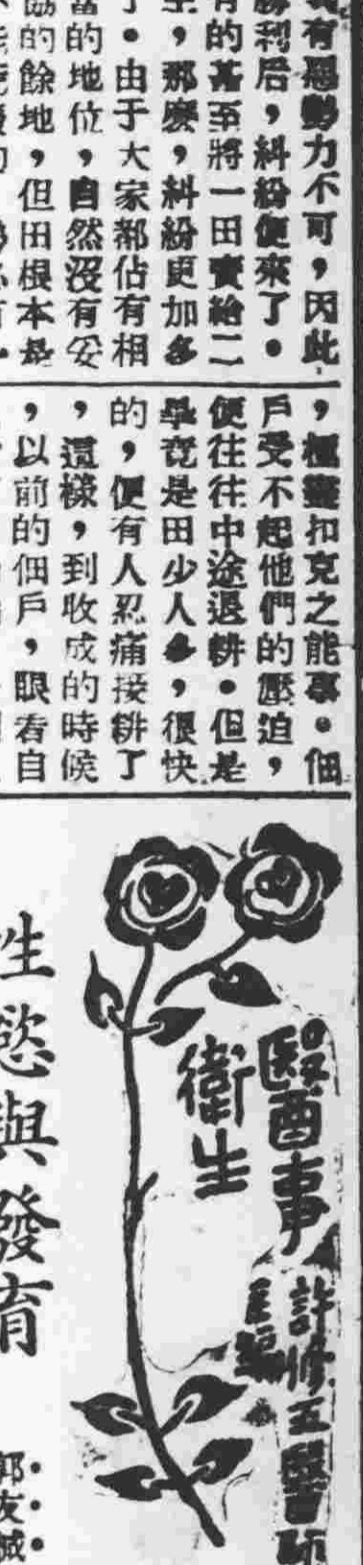 有惡勢力不可，因此
勝利后，糾紛便來了。
有的甚至將一田賣給二
，那麼，糾紛更加多
了。由于大家都佔有相
當的地位，自然沒有妥
協的餘地，但田根本是
，極盡扣克之能事。佃
戶受不起他們的壓迫，
便往往中途退耕。但是
畢竟是田少人多，很快
的，便有人忍痛接耕了
，這樣，到收成的時候
，以前的佃戶，眼看自
醫事
衛生
許修五醫師
主編
性慾與發育
郭友